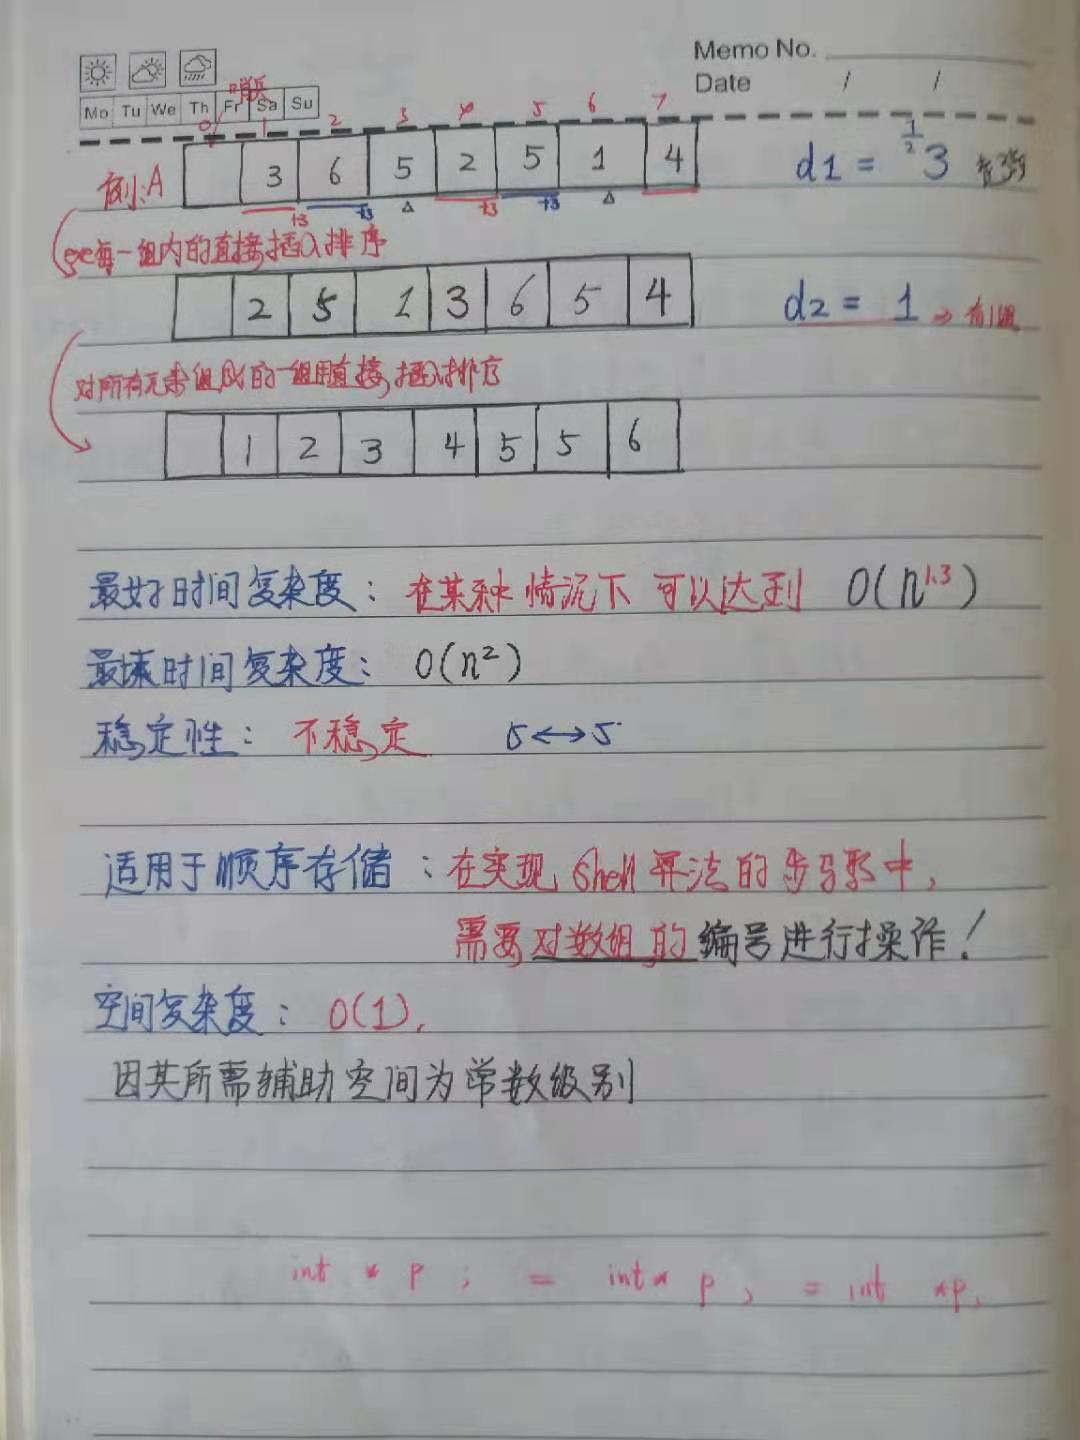 Memo No.
Date / /
Mo Tu We Th Fr Sa Su
哨兵
0 1 2 3 4 5 6 7
例:A 3 6 5 2 5 1 4 d1 = 3
+3 +3 △ +3 +3 △
每一组内的直接插入排序
2 5 1 3 6 5 4 d2 = 1 ⇒
对所有元素组成的一组用直接插入排序
1 2 3 4 5 5 6
最好时间复杂度: 在某种情况下可以达到 O(n^1.3)
最坏时间复杂度: O(n²)
稳定性: 不稳定 5⟷5
适用于顺序存储:在实现 Shell 算法的步骤中,
需要对数组的编号进行操作!
空间复杂度: O(1).
因其所需辅助空间为常数级别
int * p ; = int* p ; = int *p;